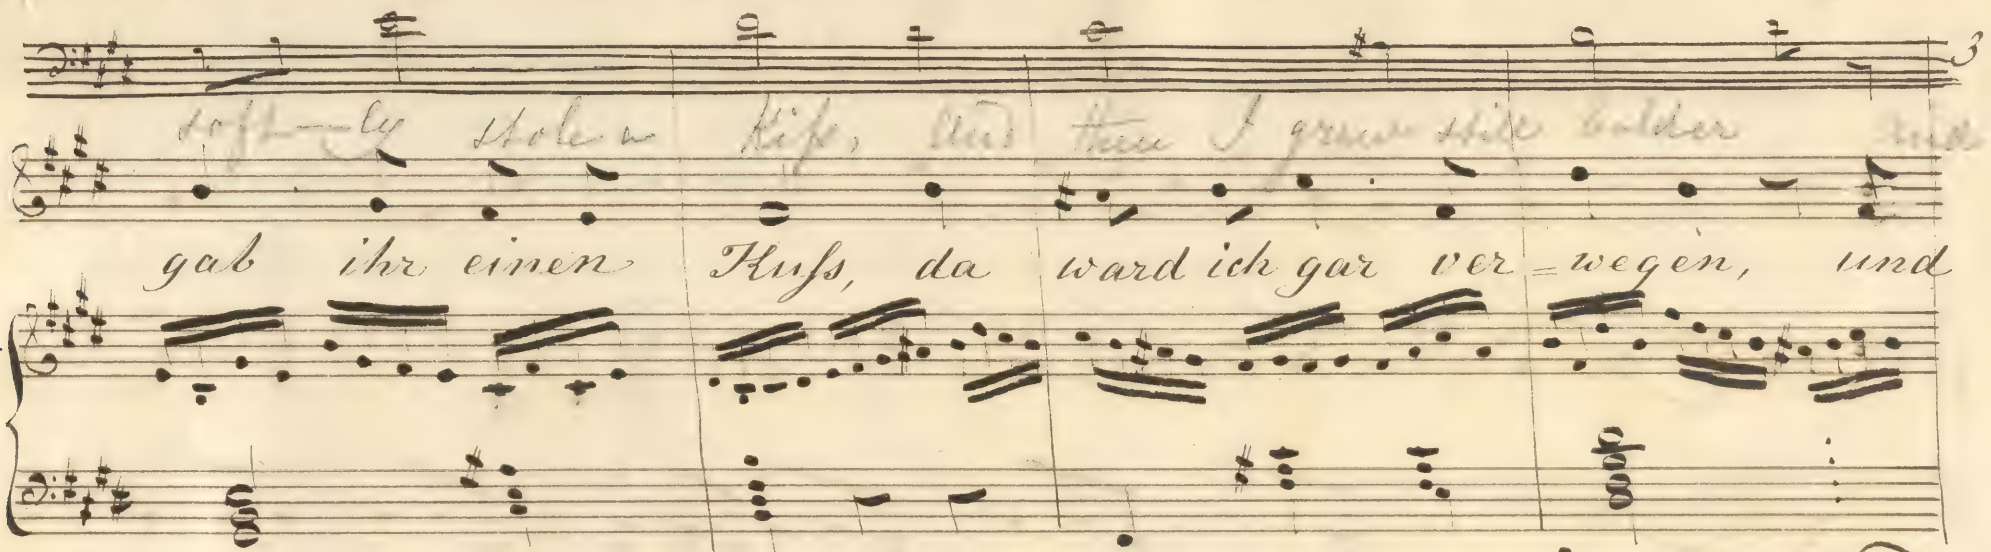 3
soft-ly stolen Kiſs, and then I grew still bolder and
gab ihr einen Kuſs, da ward ich gar ver=wegen, und